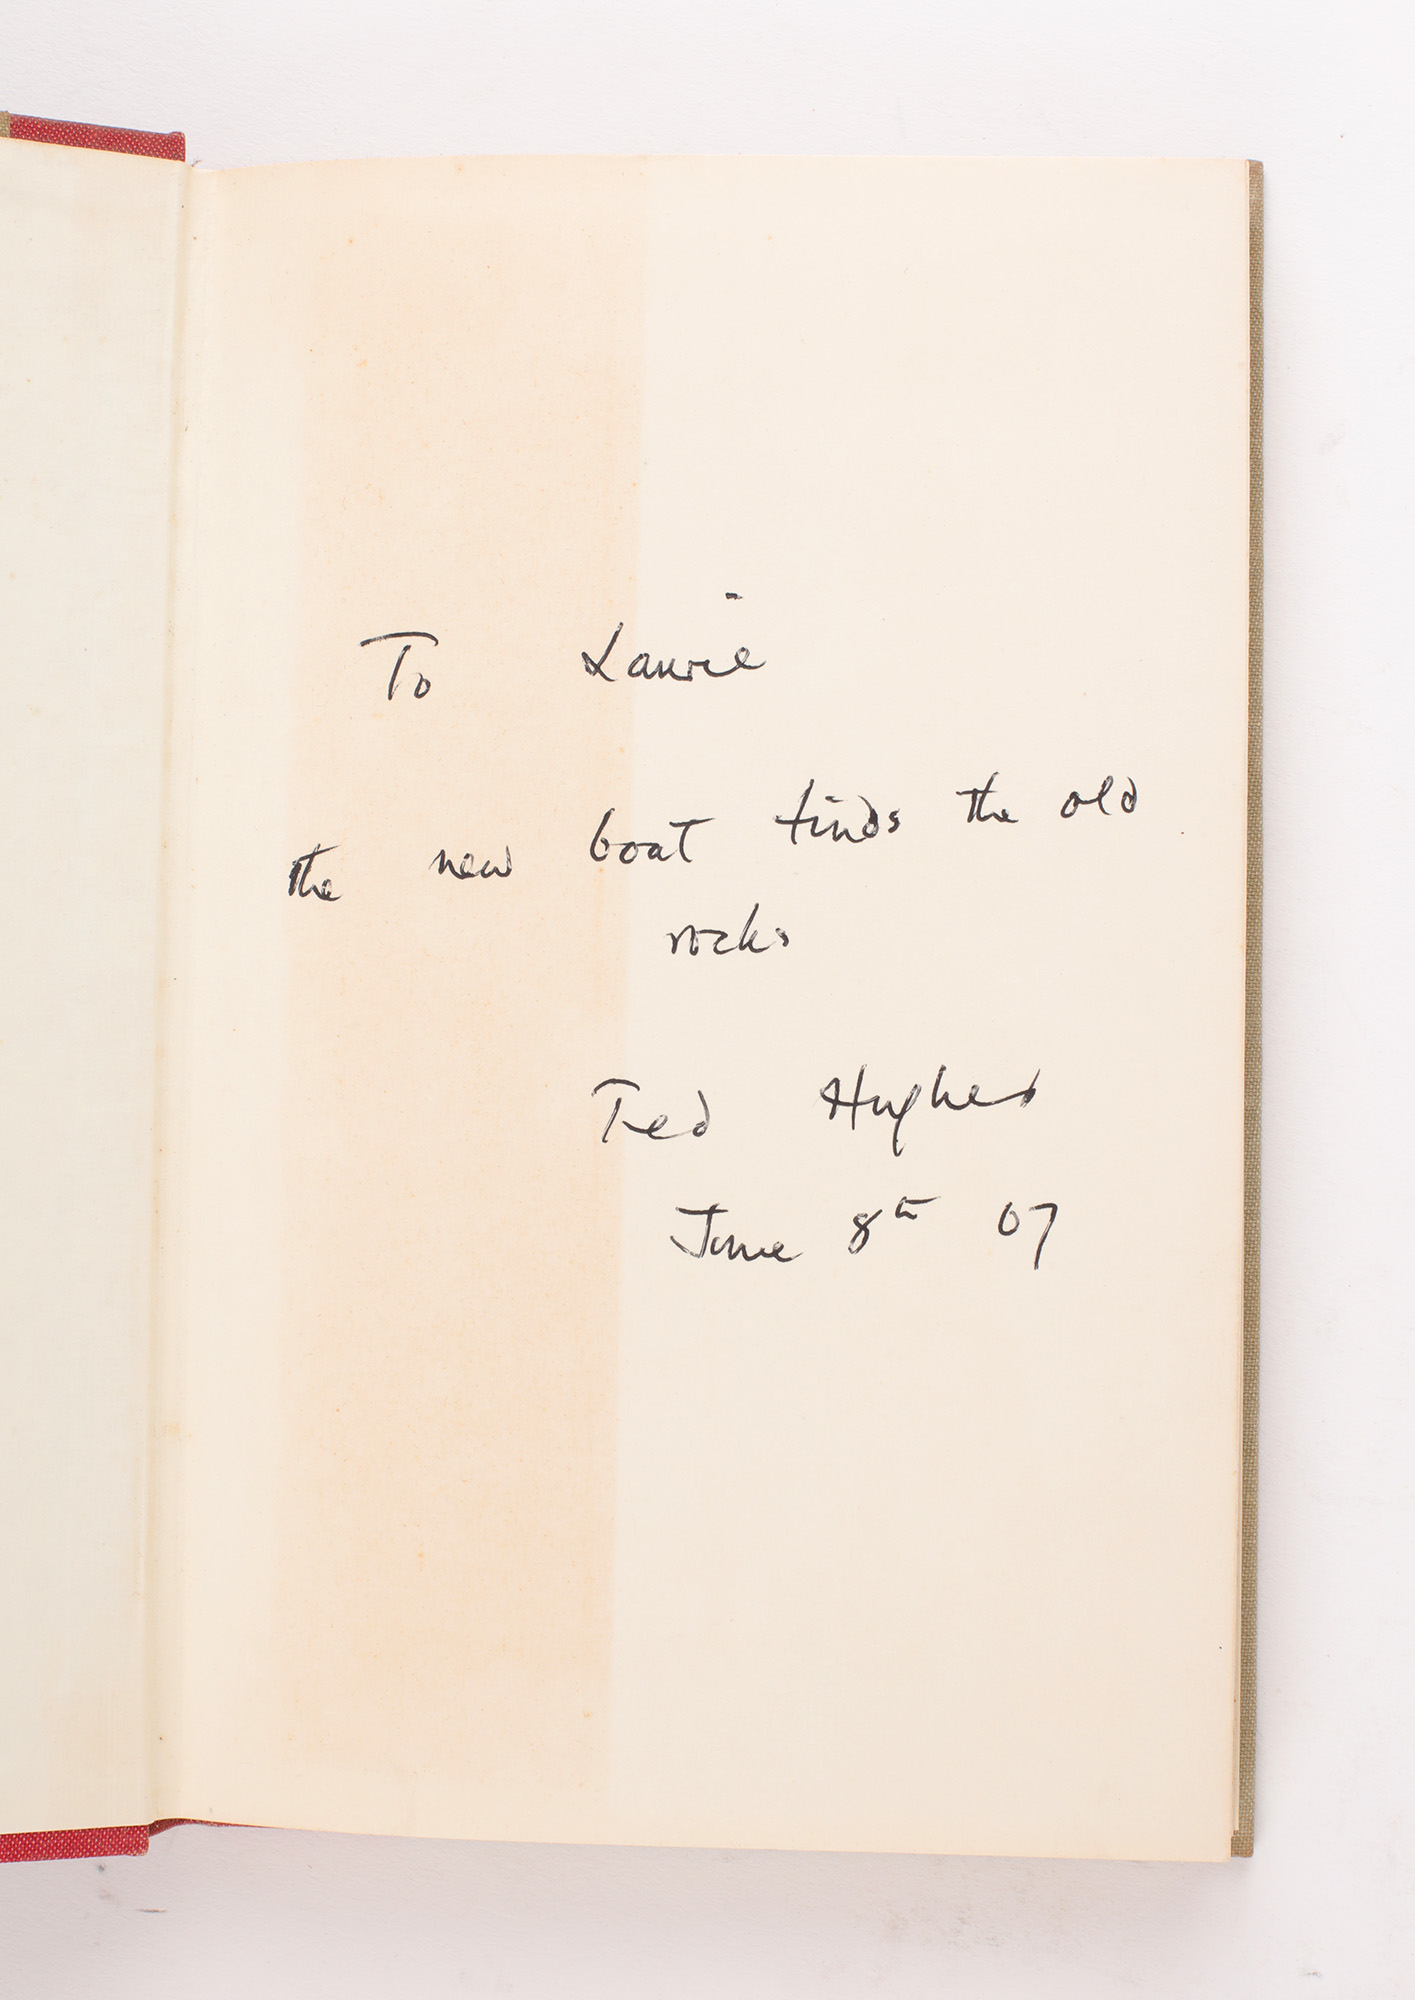 To Laurie
the new boat finds the old
rocks
Ted Hughes
June 8th 07